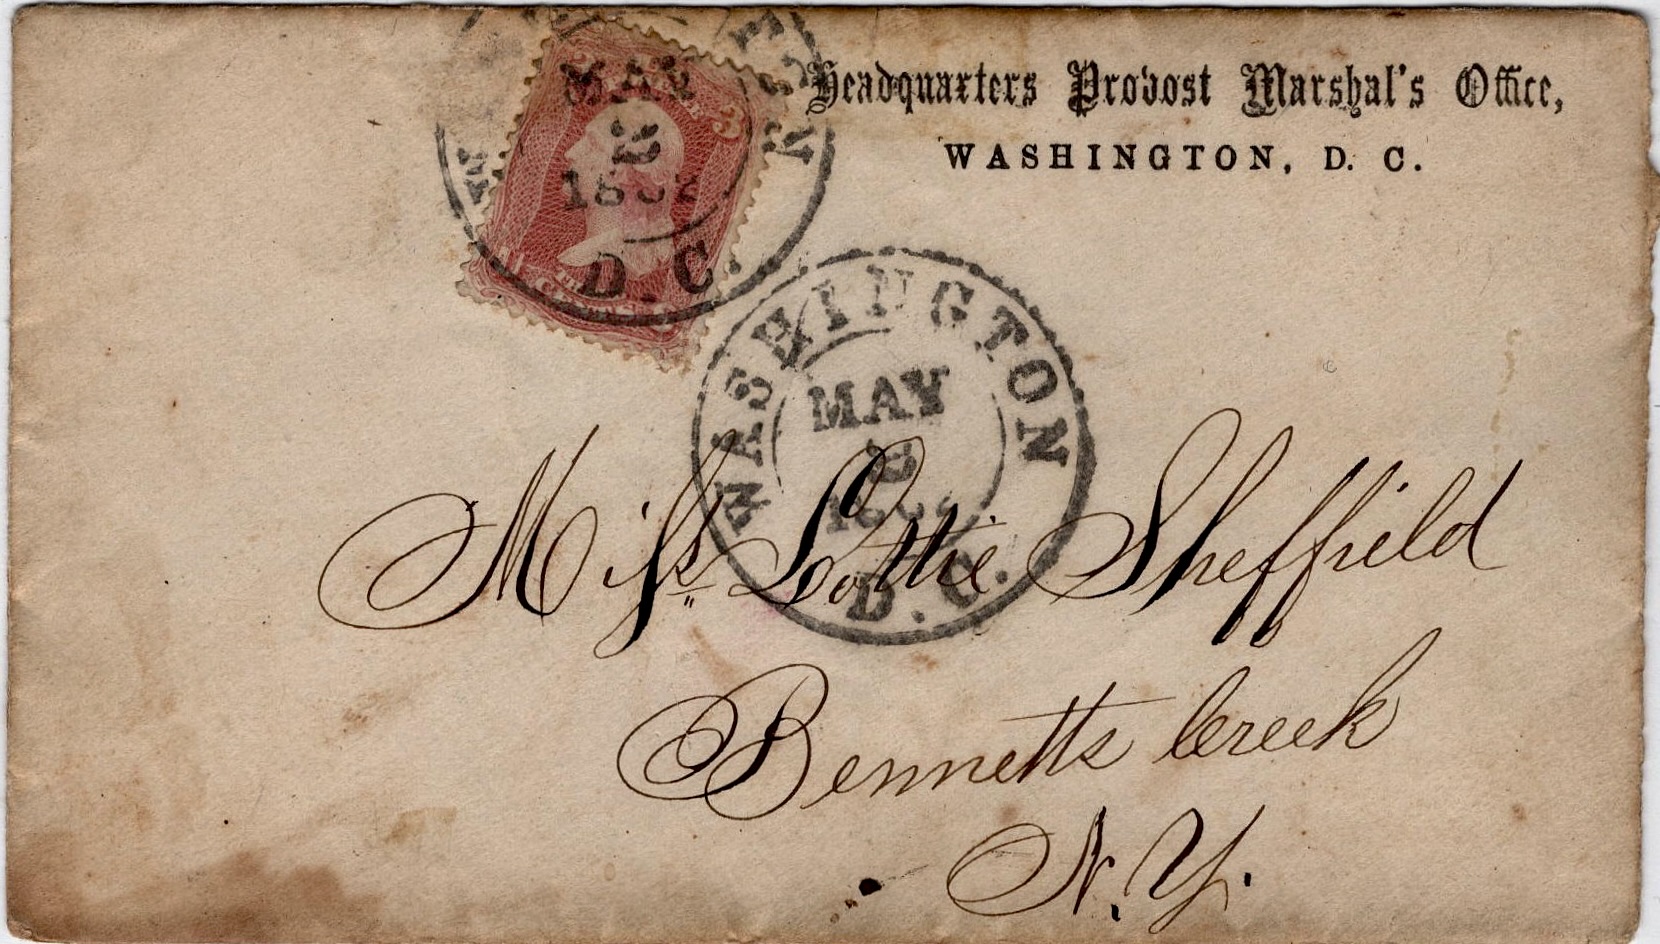 Headquarters Provost Marshal's Office,
WASHINGTON, D. C.
MAY
D. C.
3
WASHINGTON
MAY
D. C.
Miss Lottie Sheffield
Bennetts Creek
N. Y.